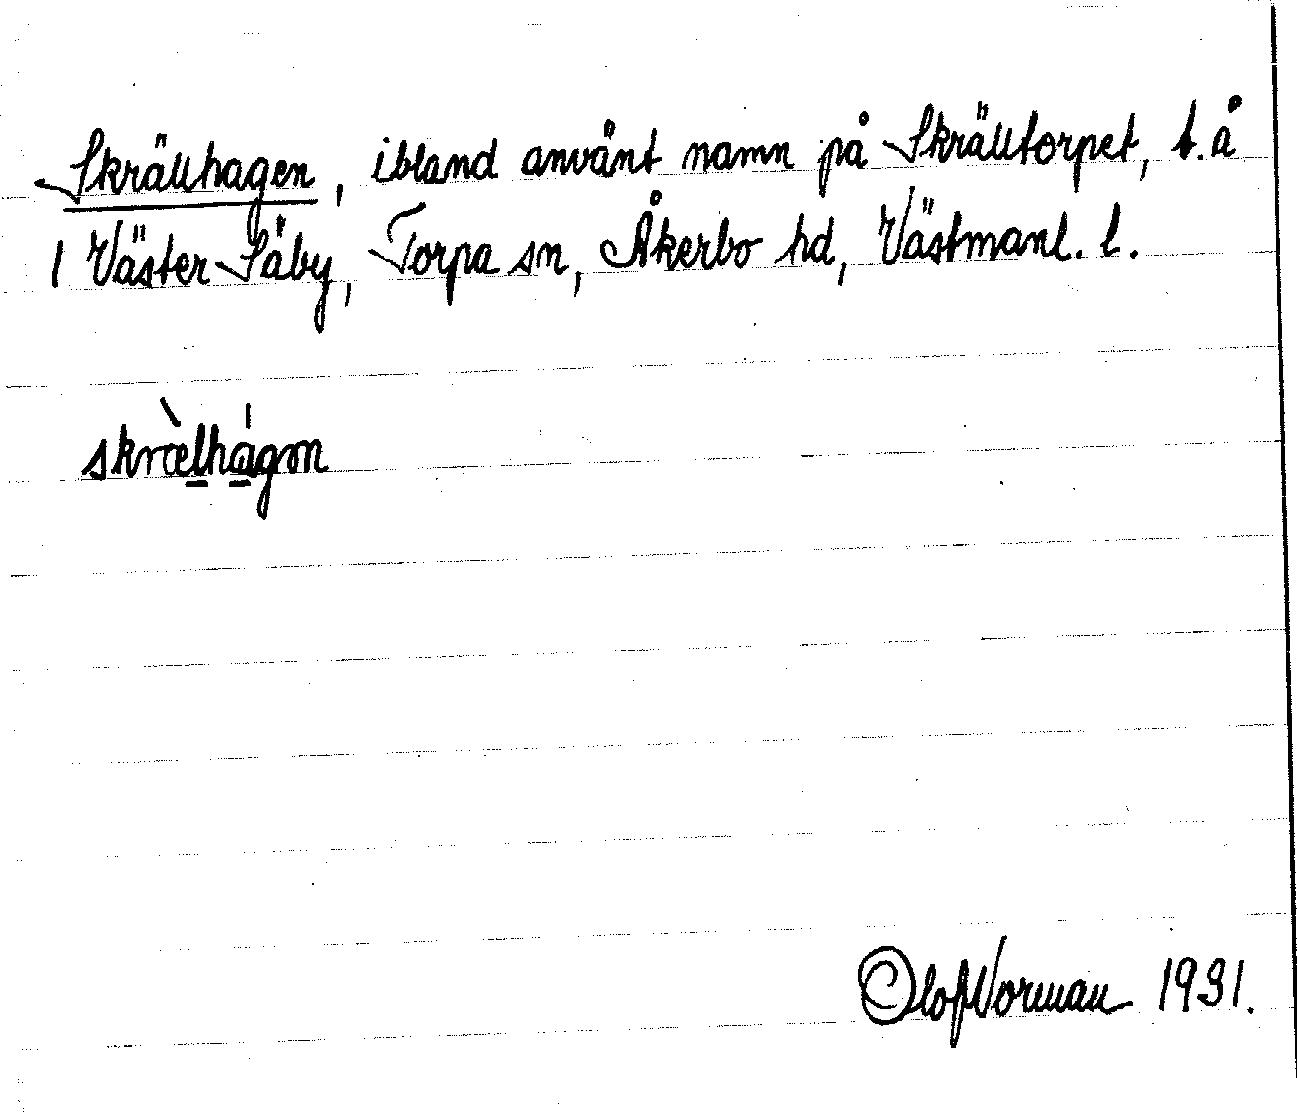 Skrällhagen, ibland använt namn på Skrälltorpet, t. å
1 Väster Säby, Torpa sn, Åkerbo hd, Västmanl. l.
skrælhagɷn
Olof Norman 1931.